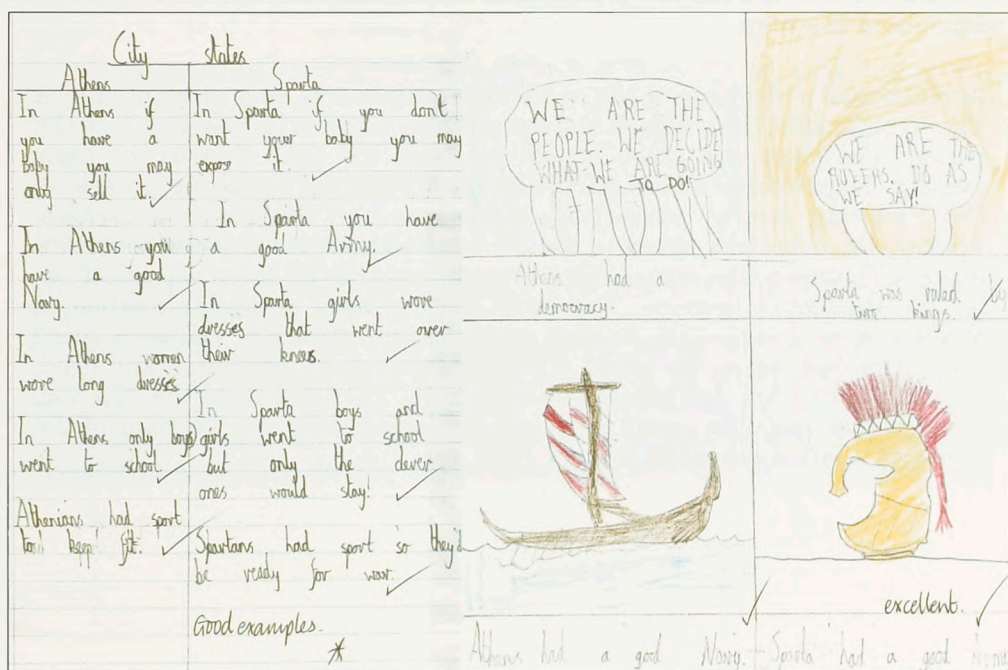 City states
Athens
In Athens if
you have a
baby you may
only sell it.
In Athens you
have a good
Navy.
In Athens women
wore long dresses
In Athens only boys
went to school.
Athenians had sport
to keep fit.
Sparta
In Sparta if you don't
want your baby you may
expose it.
In Sparta you have
a good Army.
In Sparta girls wore
dresses that went over
their knees.
In Sparta boys and
girls went to school
but only the clever
ones would stay!
Spartans had sport so they'd
be ready for war.
Good examples.
WE ARE THE
PEOPLE. WE DECIDE
WHAT WE ARE GOING
TO DO!
Athens had a
democracy.
WE ARE THE
RULERS. DO AS
WE SAY!
Sparta was ruled
two kings.
Athens had a good Navy.
excellent.
Sparta had a good